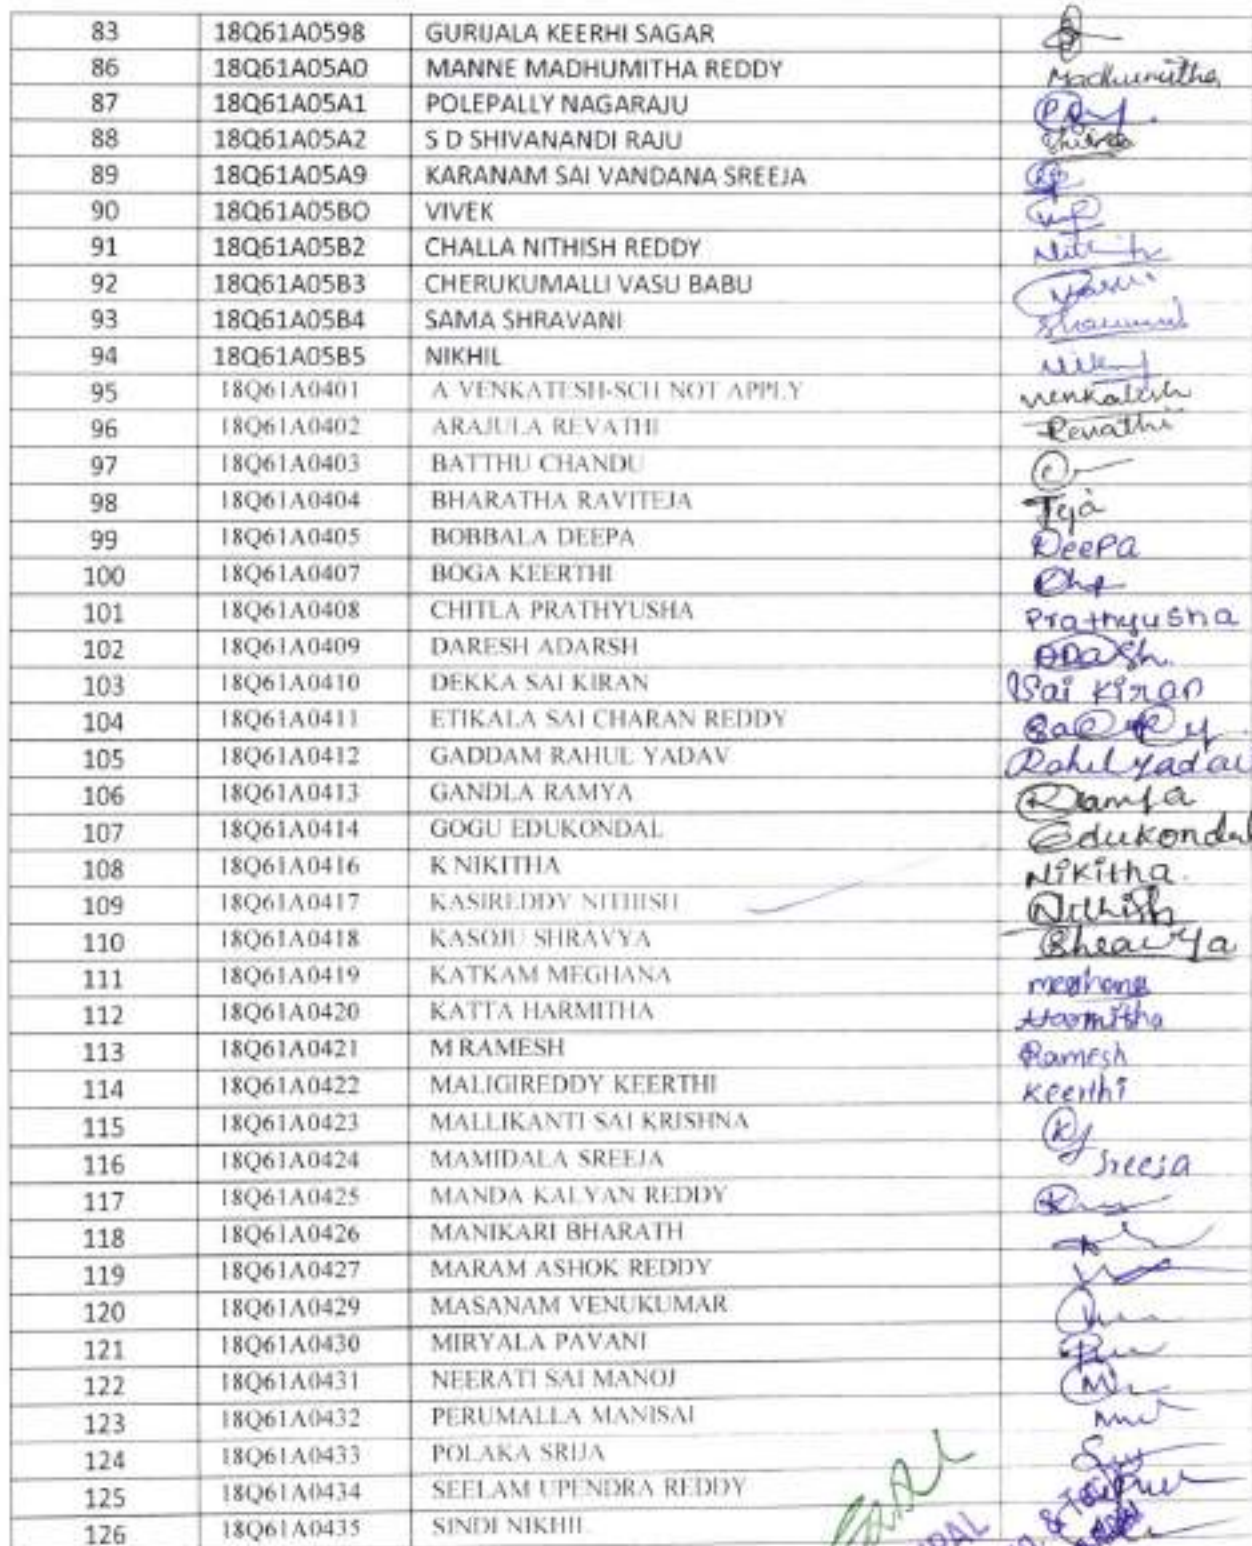 83 18Q61A0598 GURIJALA KEERHI SAGAR
86 18Q61A05A0 MANNE MADHUMITHA REDDY Madhumitha
87 18Q61A05A1 POLEPALLY NAGARAJU
88 18Q61A05A2 S D SHIVANANDI RAJU
89 18Q61A05A9 KARANAM SAI VANDANA SREEJA
90 18Q61A05BO VIVEK
91 18Q61A05B2 CHALLA NITHISH REDDY
92 18Q61A05B3 CHERUKUMALLI VASU BABU
93 18Q61A05B4 SAMA SHRAVANI
94 18Q61A05B5 NIKHIL
95 18Q61A0401 A VENKATESH-SCH NOT APPLY venkatesh
96 18Q61A0402 ARAJULA REVATHI Revathi
97 18Q61A0403 BATTHU CHANDU
98 18Q61A0404 BHARATHA RAVITEJA Teja
99 18Q61A0405 BOBBALA DEEPA DeePa
100 18Q61A0407 BOGA KEERTHI
101 18Q61A0408 CHITLA PRATHYUSHA Prathyusha
102 18Q61A0409 DARESH ADARSH
103 18Q61A0410 DEKKA SAI KIRAN Sai Kiran
104 18Q61A0411 ETIKALA SAI CHARAN REDDY
105 18Q61A0412 GADDAM RAHUL YADAV Rahul yadav
106 18Q61A0413 GANDLA RAMYA Ramya
107 18Q61A0414 GOGU EDUKONDAL Edukondal
108 18Q61A0416 K NIKITHA Nikitha.
109 18Q61A0417 KASIREDDY NITHISH Nithish
110 18Q61A0418 KASOJU SHRAVYA Shravya
111 18Q61A0419 KATKAM MEGHANA meghana
112 18Q61A0420 KATTA HARMITHA Harmitha
113 18Q61A0421 M RAMESH Ramesh
114 18Q61A0422 MALIGIREDDY KEERTHI Keerthi
115 18Q61A0423 MALLIKANTI SAI KRISHNA
116 18Q61A0424 MAMIDALA SREEJA Sreeja
117 18Q61A0425 MANDA KALYAN REDDY
118 18Q61A0426 MANIKARI BHARATH
119 18Q61A0427 MARAM ASHOK REDDY
120 18Q61A0429 MASANAM VENUKUMAR
121 18Q61A0430 MIRYALA PAVANI
122 18Q61A0431 NEERATI SAI MANOJ
123 18Q61A0432 PERUMALLA MANISAI
124 18Q61A0433 POLAKA SRIJA
125 18Q61A0434 SEELAM UPENDRA REDDY
126 18Q61A0435 SINDI NIKHIL